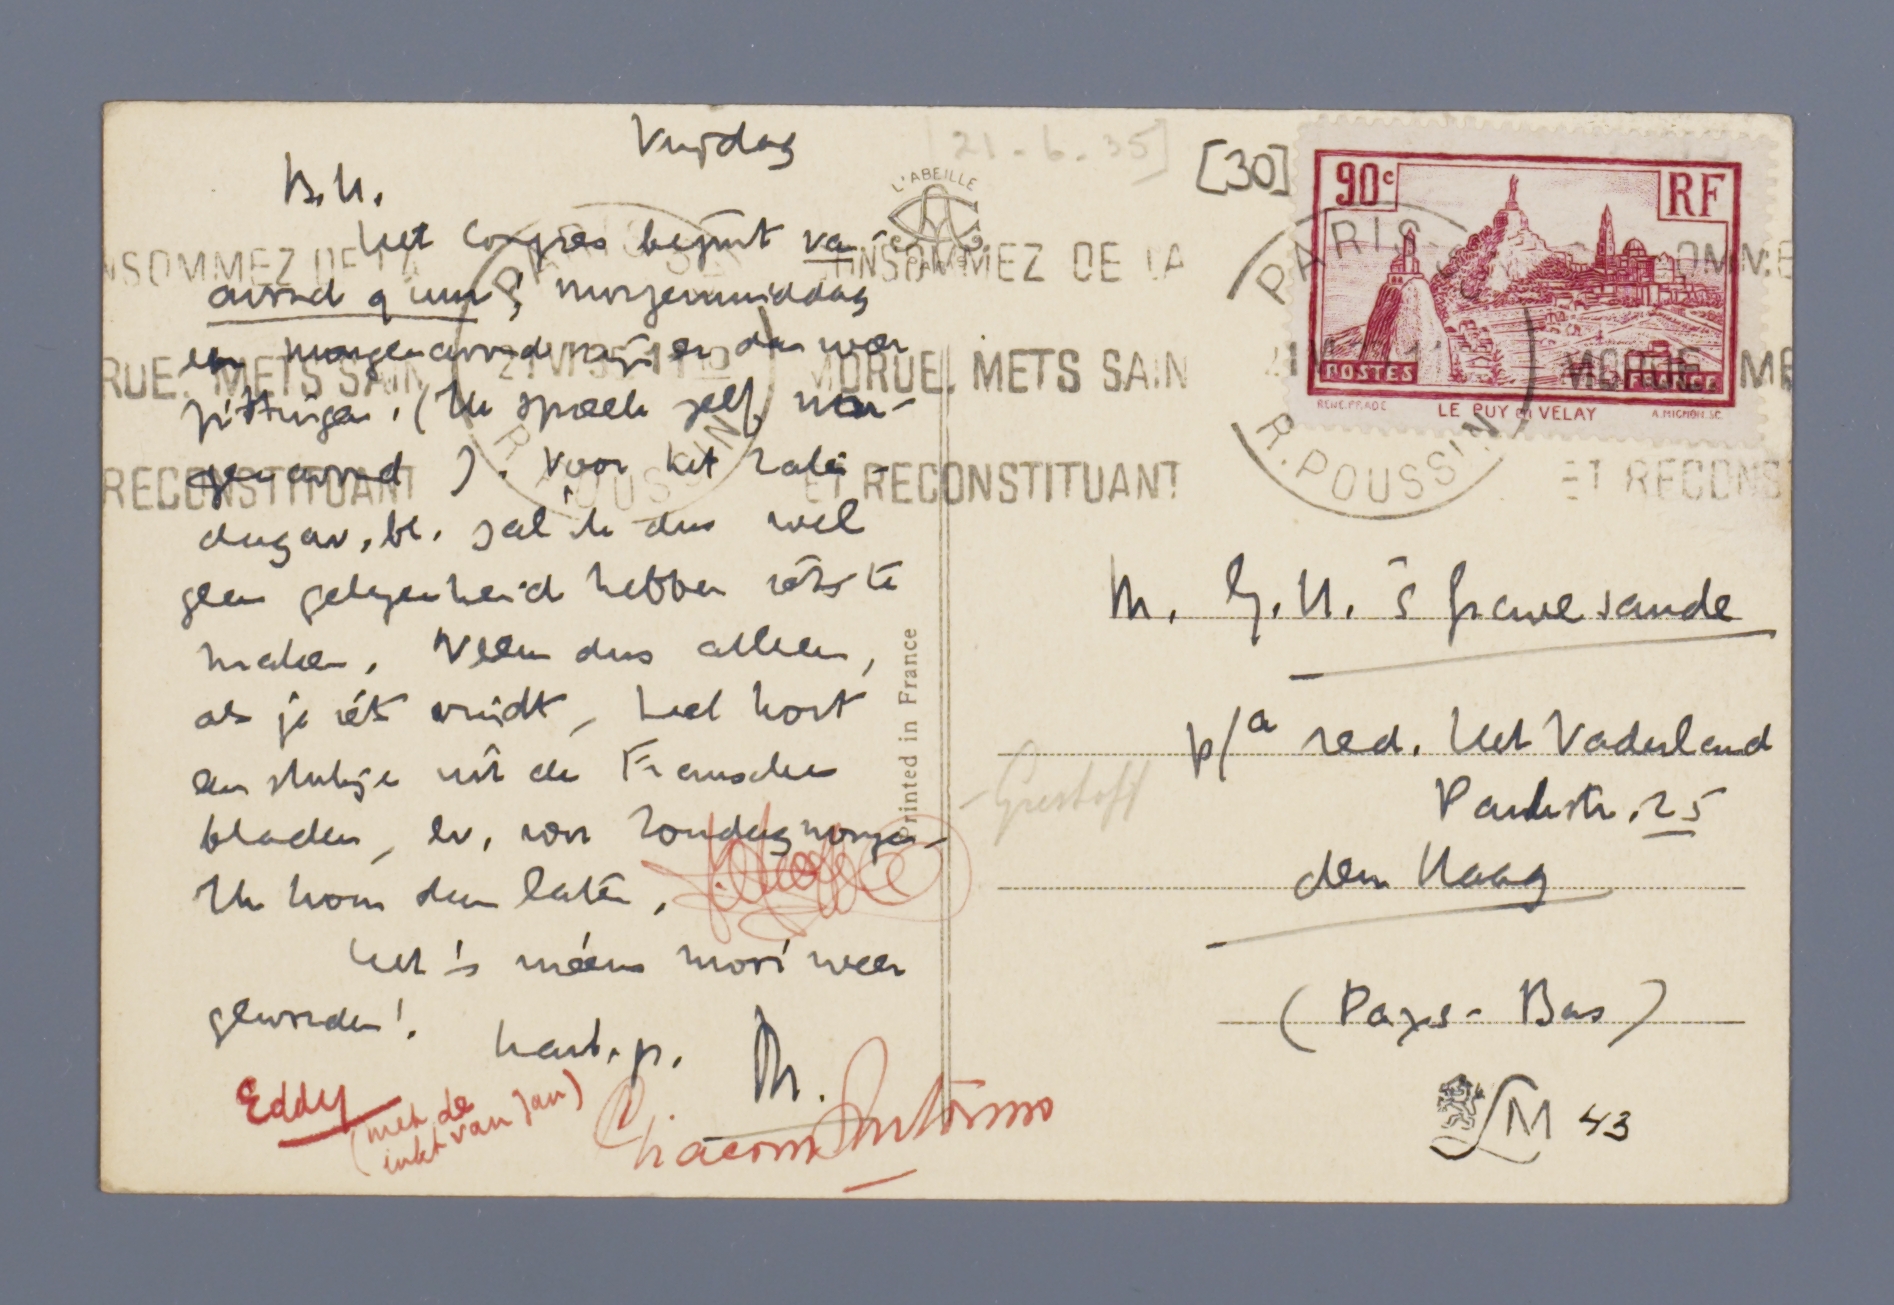 Vrijdag
[21-6-35]
[30]
B.H.
Het Congres begint van-
avond 9 uur; morgenmiddag
en morgenavond zijn er dan weer
zittingen. (Ik spreek zelf mor-
genavond). Voor het Zater-
dagav.bl. zal ik dus wel
geen gelegenheid hebben iets te
maken. Neem dus alleen,
als je iets vindt, heel kort
een stukje uit de Fransche
bladen, ev. voor Zondagmorgen
Ik kom dan later.
Het is ineens mooi weer
geworden!
hart. gr.
M.
Eddy
(met de
inkt van Jan)
Antonino
L'ABEILLE
PARIS
Printed in France
90c
RF
POSTES
FRANCE
LE PUY EN VELAY
A.MIGNON.SC.
CONSOMMEZ DE LA
MORUE. METS SAIN
ET RECONSTITUANT
PARIS
R. POUSSIN
M. G.H. 's Gravesande
p/a red. Het Vaderland
Parkstr. 25
den Haag
(Pays-Bas)
LM 43